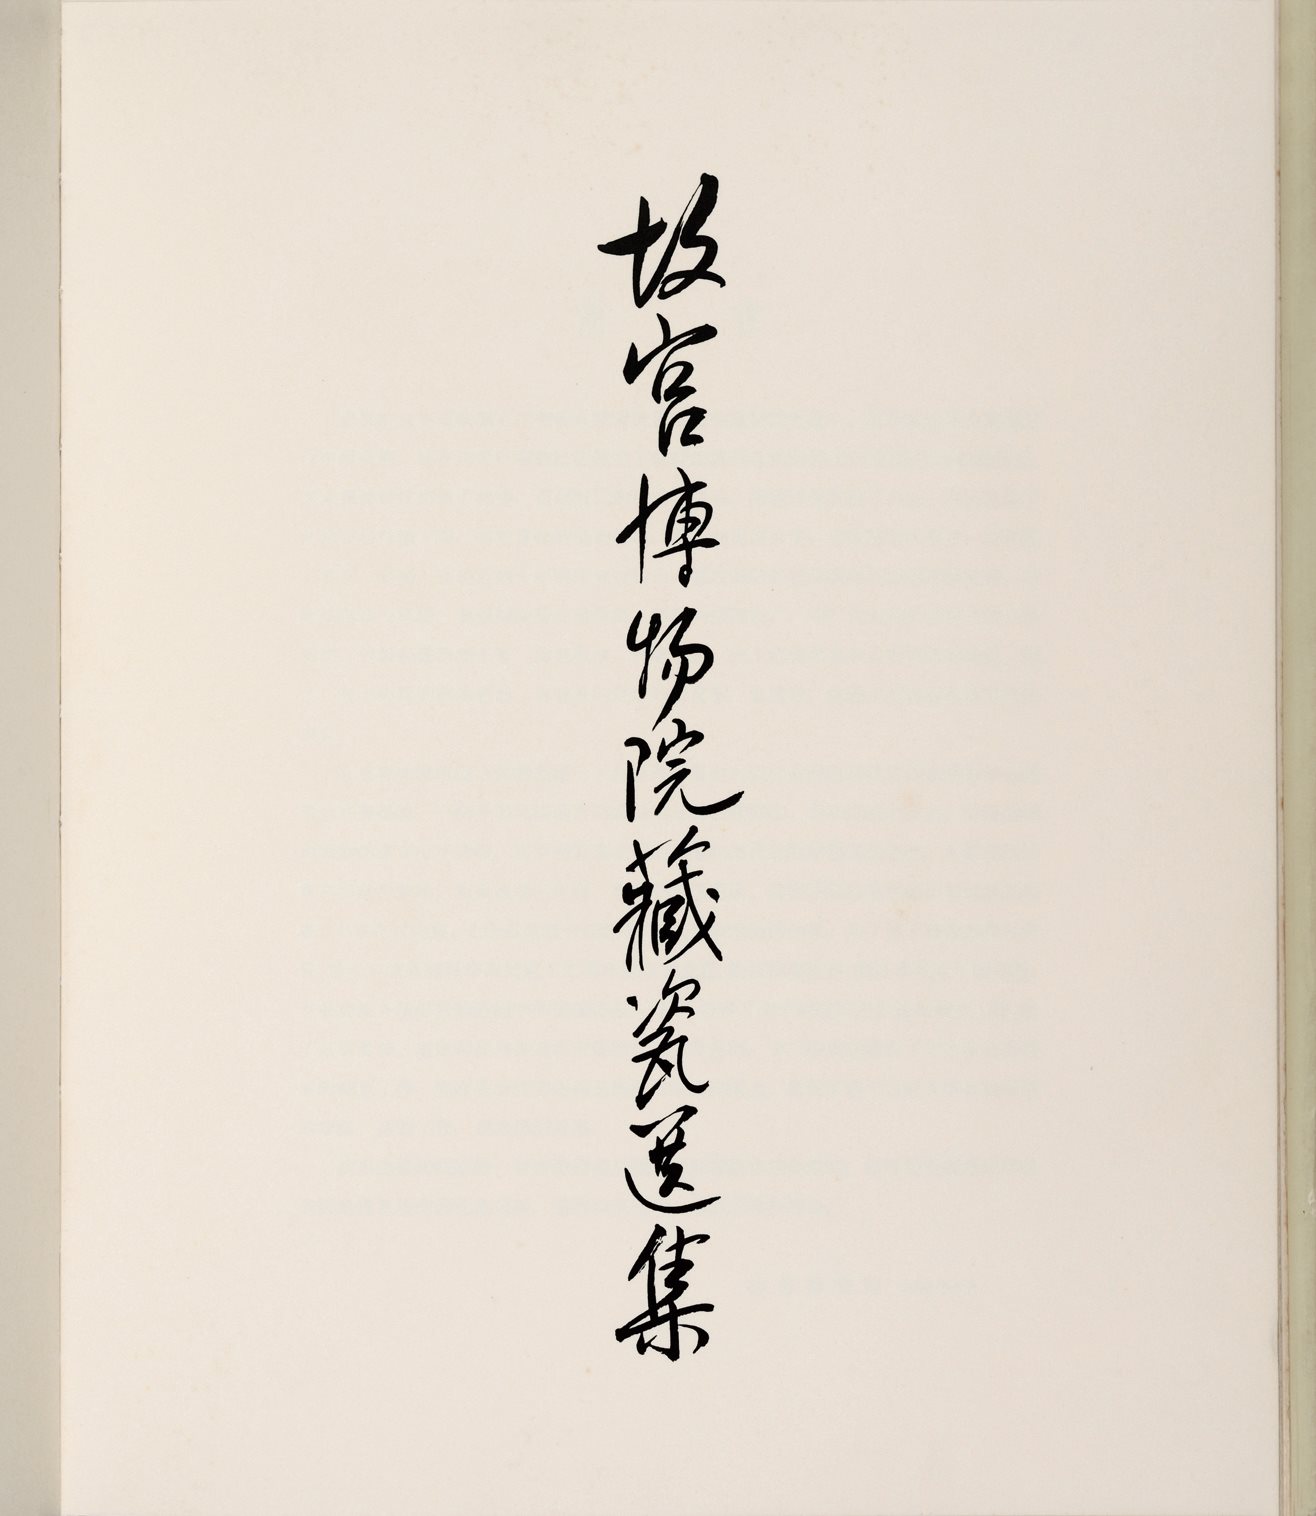 故宫博物院藏瓷選集